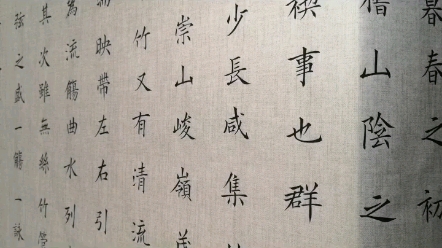 暮春之初
稽山陰之
禊事也群
少長咸集
崇山峻嶺茂
竹又有清流
映帶左右引
為流觴曲水列
其次雖無絲竹管
弦之盛一觴一詠